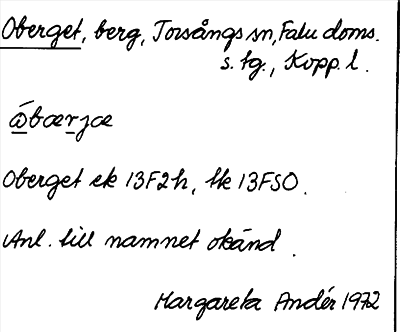 Oberget, berg, Torsångs sn, Falu doms.
s. tg., Kopp. l.
ώ̲bær̲jæ
Oberget ek 13F2h, tk 13FSO.
Anl. till namnet okänd.
Margareta Andér 1972